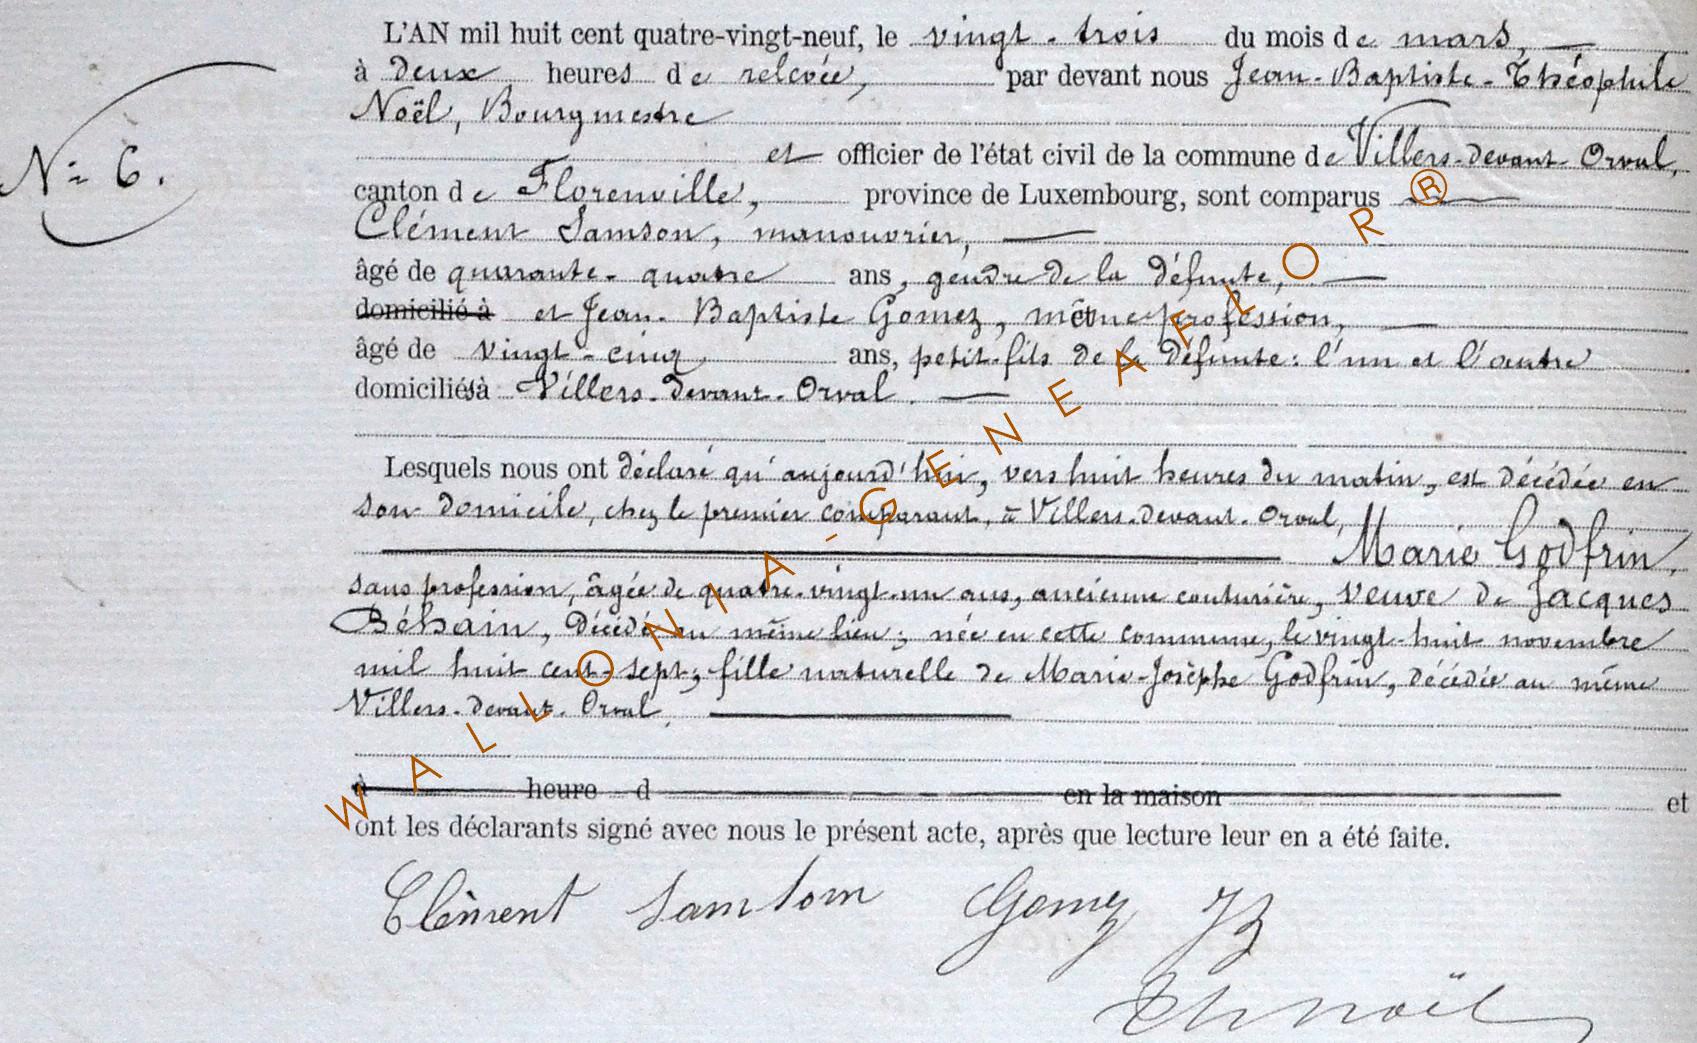 L'AN mil huit cent quatre-vingt-neuf, le vingt-trois du mois de mars,
à deux heures de relevée, par devant nous Jean-Baptiste-Théophile
Noël, Bourgmestre
et officier de l'état civil de la commune de Villers-devant-Orval,
N= 6.
canton de Florenville, province de Luxembourg, sont comparus
Clément Samson, manouvrier,
âgé de quarante-quatre ans, gendre de la défunte,
domicilié à et Jean-Baptiste Gomez, même profession,
âgé de vingt-cinq ans, petit-fils de la défunte: l'un et l'autre
domiciliés à Villers-devant-Orval.
Lesquels nous ont déclaré qu'aujourd'hui, vers huit heures du matin, est décédée en
son domicile, chez le premier comparant, à Villers-devant-Orval,
Marie Godfrin,
sans profession, âgée de quatre-vingt-un ans, ancienne couturière, veuve de Jacques
Béhain, décédé au même lieu; née en cette commune, le vingt-huit novembre
mil huit cent-sept; fille naturelle de Marie-Josèphe Godfrin, décédée au même
Villers-devant-Orval.
à heure d en la maison et
ont les déclarants signé avec nous le présent acte, après que lecture leur en a été faite.
Clèment Samsom Gomez JB
Th Noël
WALLONIA-GENEAFLOR®